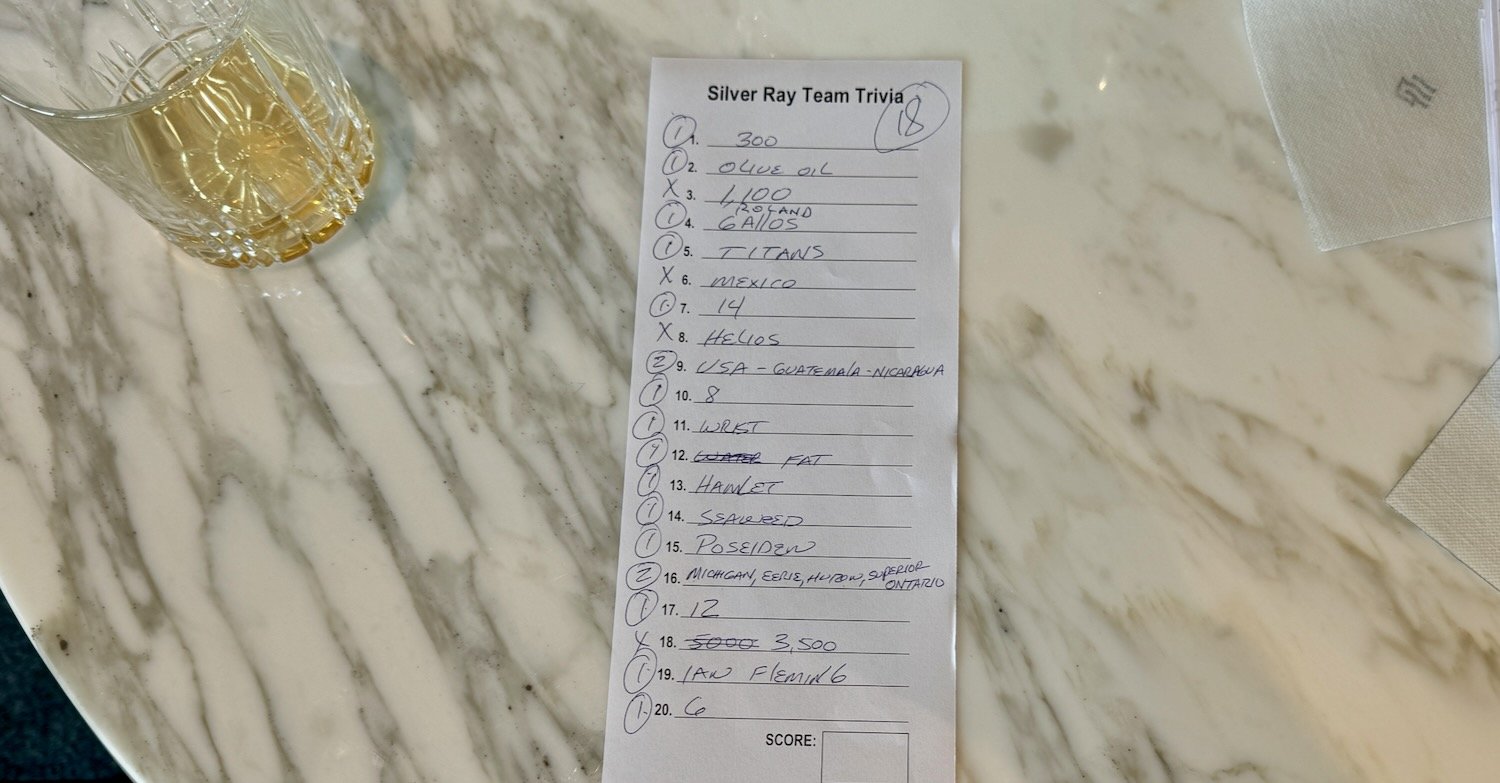 Silver Ray Team Trivia 18
1 1. 300
1 2. OLIVE OIL
X 3. 1,100
ROLAND
1 4. GAllOS
1 5. TITANS
X 6. MEXICO
1 7. 14
X 8. HELIOS
2 9. USA - GUATEMALA - NICARAGUA
1 10. 8
1 11. WRIST
1 12. WATER FAT
1 13. HAMLET
1 14. SEAWEED
1 15. POSEIDEN
2 16. MICHIGAN, EERIE, HURON, SUPERIOR
ONTARIO
1 17. 12
X 18. 5000 3,500
1 19. IAN FlEMING
1 20. 6
SCORE: